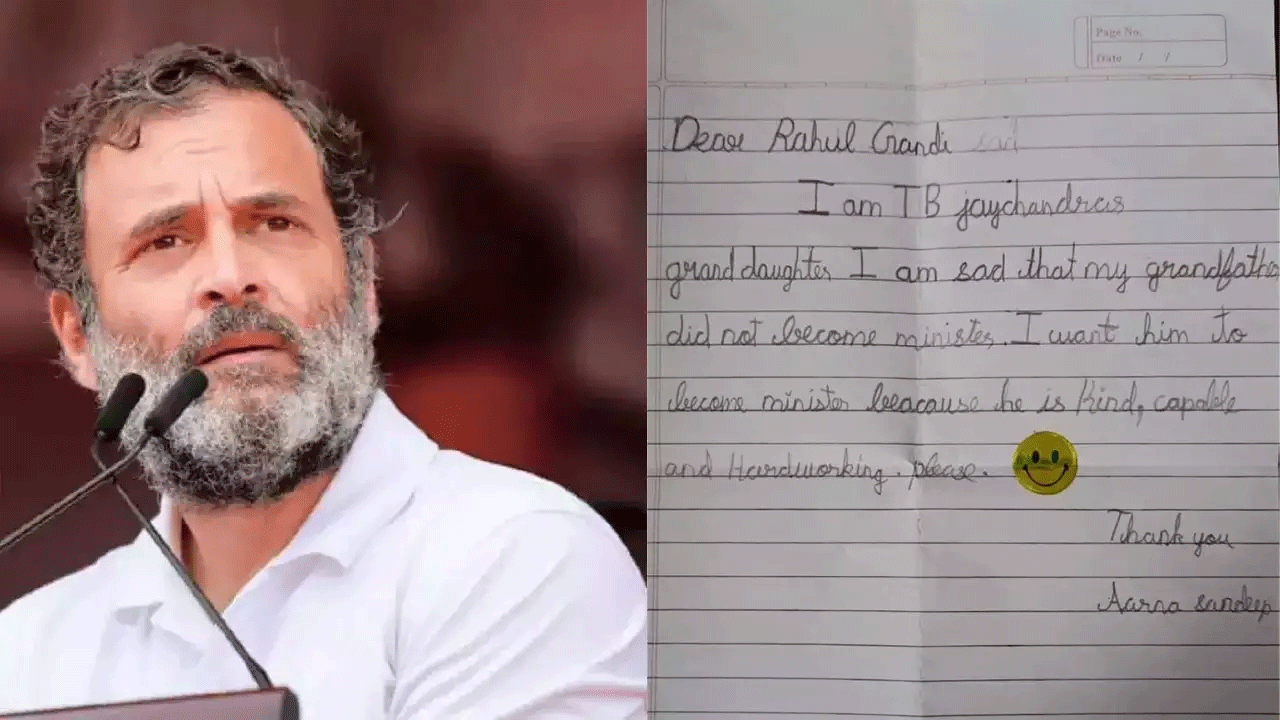 Page No.
Date / /
Dear Rahul Gandi sad
I am TB jaychandras
grand daughter I am sad that my grandfathe
did not become minister. I want him to
become minister beacause he is Kind, capable
and Hardworking. please.
Thank you
Aarna sandeep